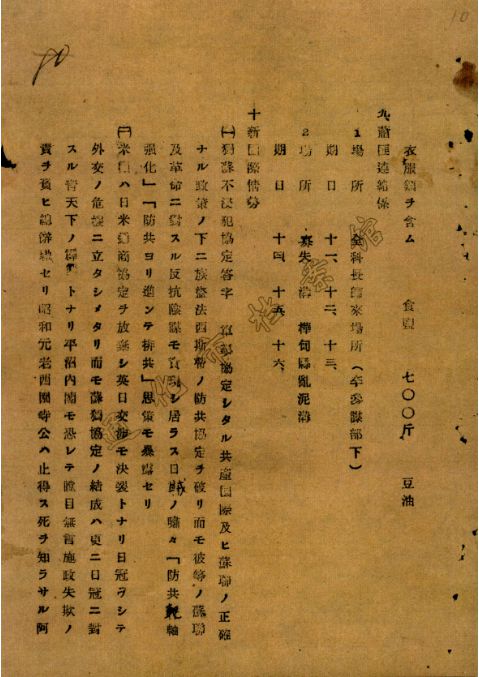 10
70
衣服類ヲ含ム 食鹽 七〇〇斤 豆油
九 蕭匪連絡係
1 場所 金科長歸來場所(卒參謀部下)
期日 十一、十二、十三、
2 場所 寡失溝 樺甸縣亂泥溝
期日 十四、十五、十六、
十 新國際情勢
㈠ 獨蘇不浸犯協定簽字 協定シタル共產國際及ヒ蘇聯ノ正確
ナル政策ノ下ニ族盜法西斯特ノ防共協定ヲ破リ而モ彼等ノ蘇聯
及革命ニ對スル反抗陰謀モ實現シ居ラス日賊ノ囑々「防共軌軸
强化」「防共ヨリ進ンテ排共」愚策モ暴露セリ
㈡ 米國ハ日米通商協定ヲ放棄シ英日交渉モ決裂トナリ日冠ヲシテ
外交ノ危機ニ立タシメタリ而モ蘇獨協定ノ結成ハ更ニ日冠ニ對
スル靑天下ノ トナリ平沼內閣モ恐レテ瞠目無言施政失敗ノ
責ヲ負ヒ總辭職セリ昭和元老西園寺公ハ止得ス死ヲ知ラサル阿